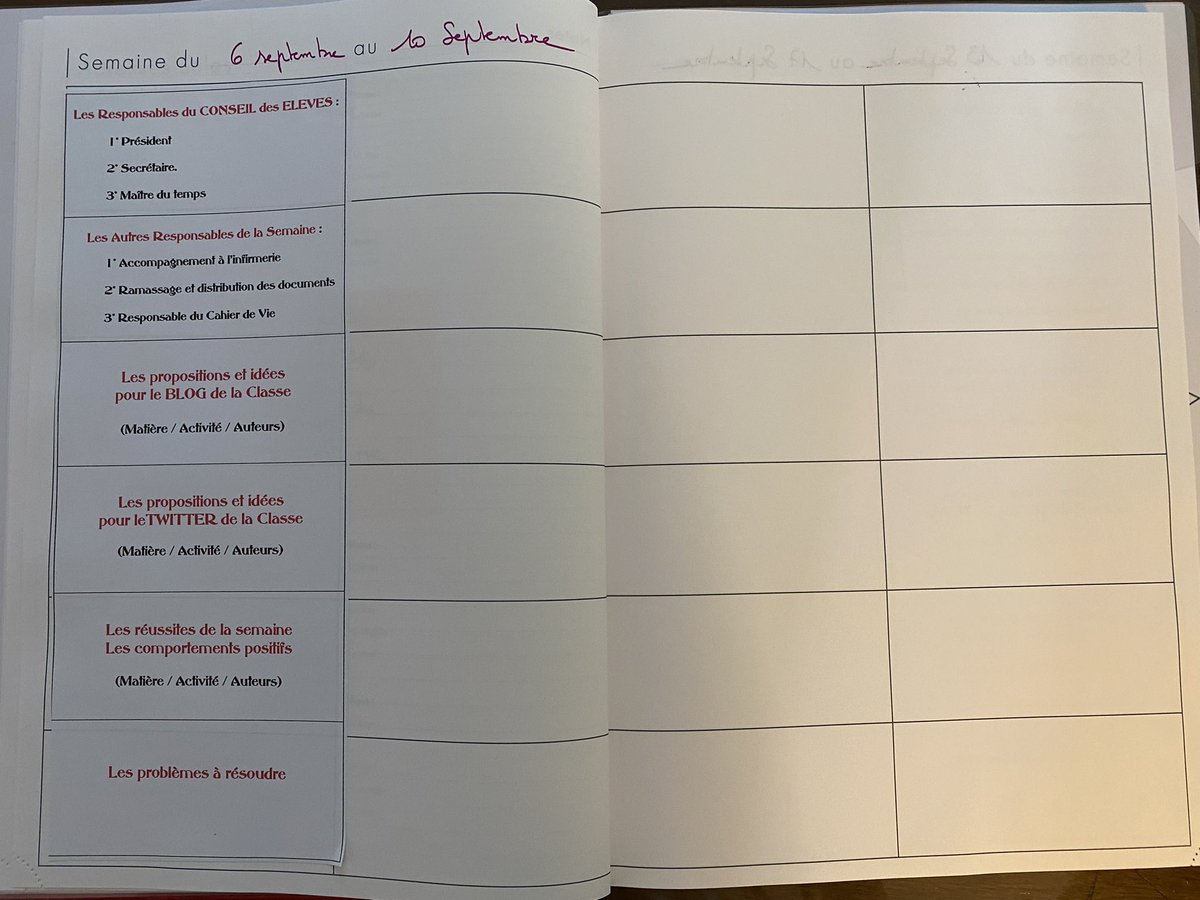 Semaine du 6 septembre au 10 Septembre
Les Responsables du CONSEIL des ELEVES :
1° Président
2° Secrétaire.
3° Maître du temps
Les Autres Responsables de la Semaine :
1° Accompagnement à l'infirmerie
2° Ramassage et distribution des documents
3° Responsable du Cahier de Vie
Les propositions et idées
pour le BLOG de la Classe
(Matière / Activité / Auteurs)
Les propositions et idées
pour leTWITTER de la Classe
(Matière / Activité / Auteurs)
Les réussites de la semaine
Les comportements positifs
(Matière / Activité / Auteurs)
Les problèmes à résoudre
Semaine du 13 Septembre au 17 Septembre